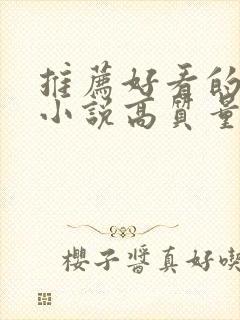 推薦好看的
小說高質量
櫻子醬真好喫